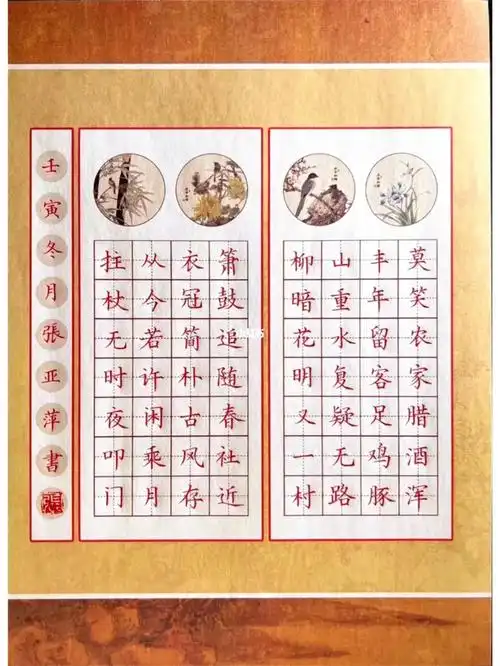 莫笑农家腊酒浑
丰年留客足鸡豚
山重水复疑无路
柳暗花明又一村
箫鼓追随春社近
衣冠简朴古风存
从今若许闲乘月
拄杖无时夜叩门
壬寅冬月張亚萍書